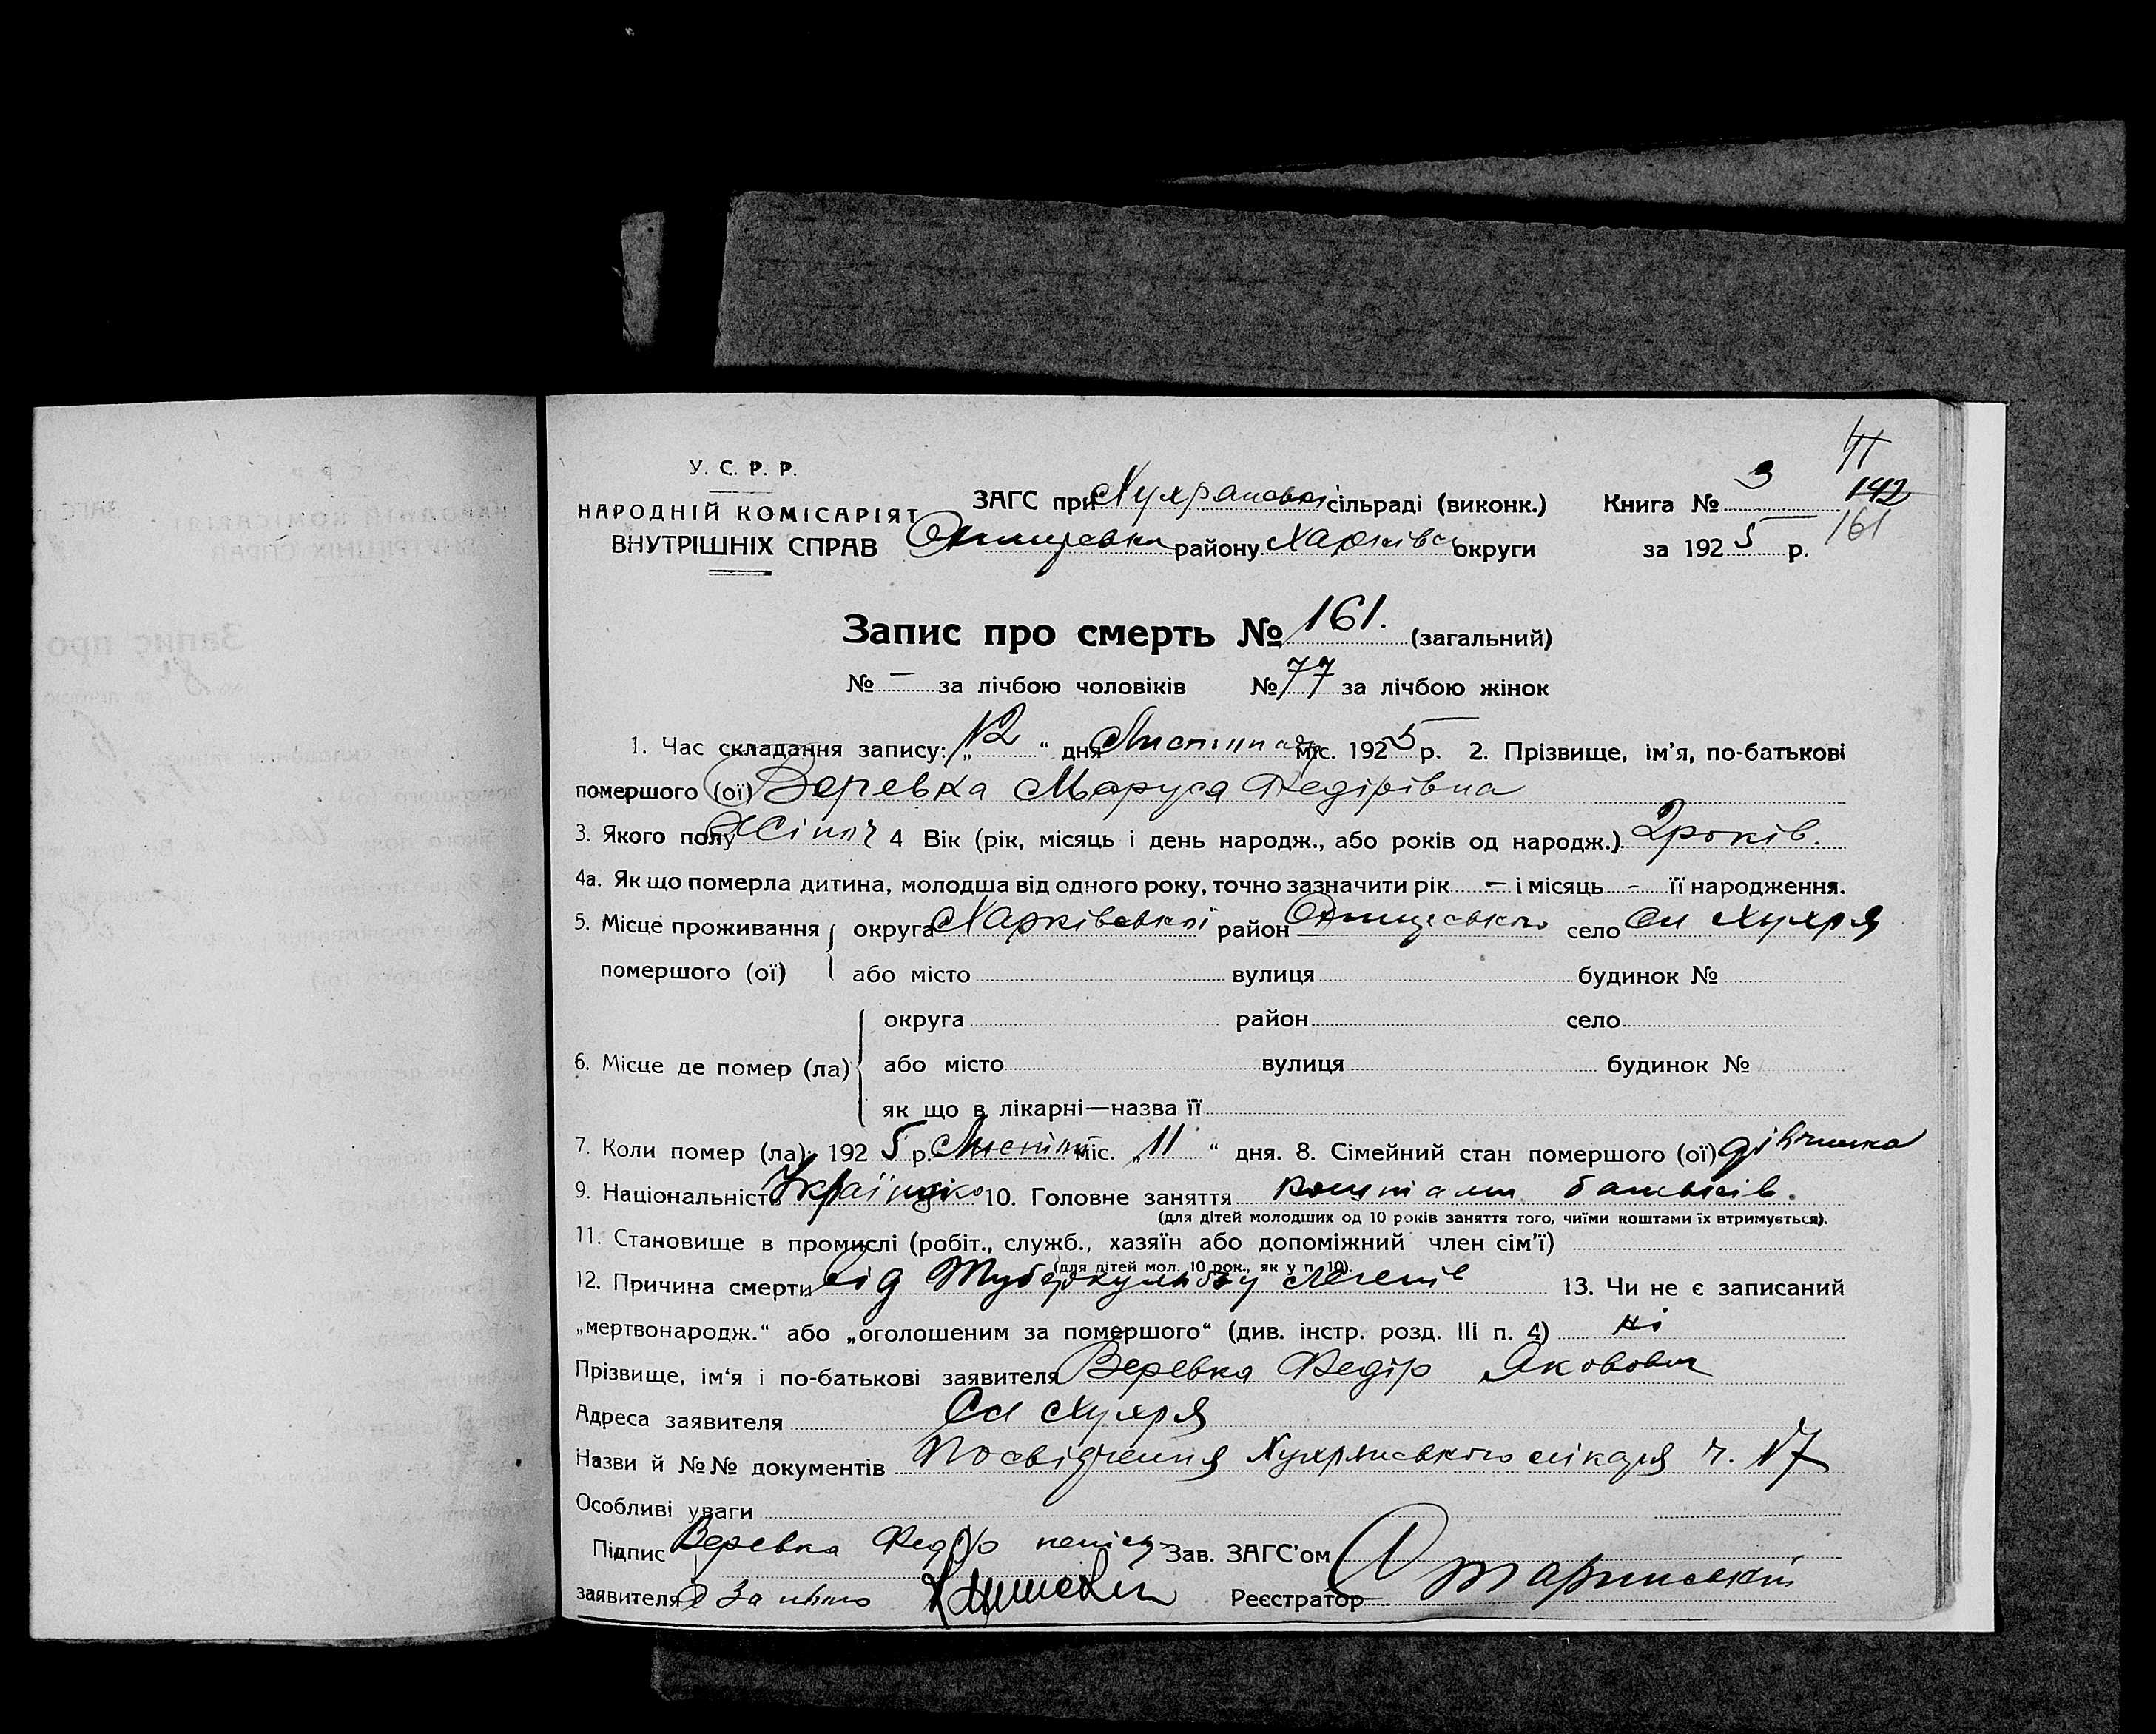 У. С. Р. Р.
НАРОДНІЙ КОМІСАРІЯТ
ВНУТРІШНІХ СПРАВ
ЗАГС при Хухрянській сільраді (виконк.)
району Харківс округи
Книга № 3
142
161
за 1925 р.
Запис про смерть № 161. (загальний)
№ – за лічбою чоловіків № 77 за лічбою жінок
1. Час складання запису: „12“ дня Листопаду міс. 1925 р. 2. Прізвище, ім'я, по-батькові
помершого (ої) Веревка Маруся Федірівна
3. Якого полу Жіноч 4 Вік (рік, місяць і день народж., або років од народж.) 2 років.
4а. Як що померла дитина, молодша від одного року, точно зазначити рік – і місяць - її народження.
5. Місце проживання округа Харківської район село сл Хухря
помершого (ої) або місто вулиця будинок №
округа район село
6. Місце де помер (ла) або місто вулиця будинок №
як що в лікарні—назва її
7. Коли помер (ла): 1925 р. Листоп міс. „11“ дня. 8. Сімейний стан помершого (ої) дівчинка
9. Національність Українка 10. Головне заняття коштами батьків.
(для дітей молодших од 10 років заняття того, чиїми коштами їх втримується).
11. Становище в промислі (робіт., служб., хазяїн або допоміжний член сім'ї)
(для дітей мол. 10 рок., як у п. 10).
12. Причина смерти від Туберкульозу легенів 13. Чи не є записаний
„мертвонародж.“ або „оголошеним за помершого“ (див. інстр. розд. III п. 4) ні
Прізвище, ім'я і по-батькові заявителя Веревка Федір Якович
Адреса заявителя Сл Хухря
Назви й №№ документів Посвідчення Хухрянського лікаря ч. 17
Особливі уваги
Підпис Веревка Федір неписьм Зав. ЗАГС'ом
заявителя За нього Реєстратор